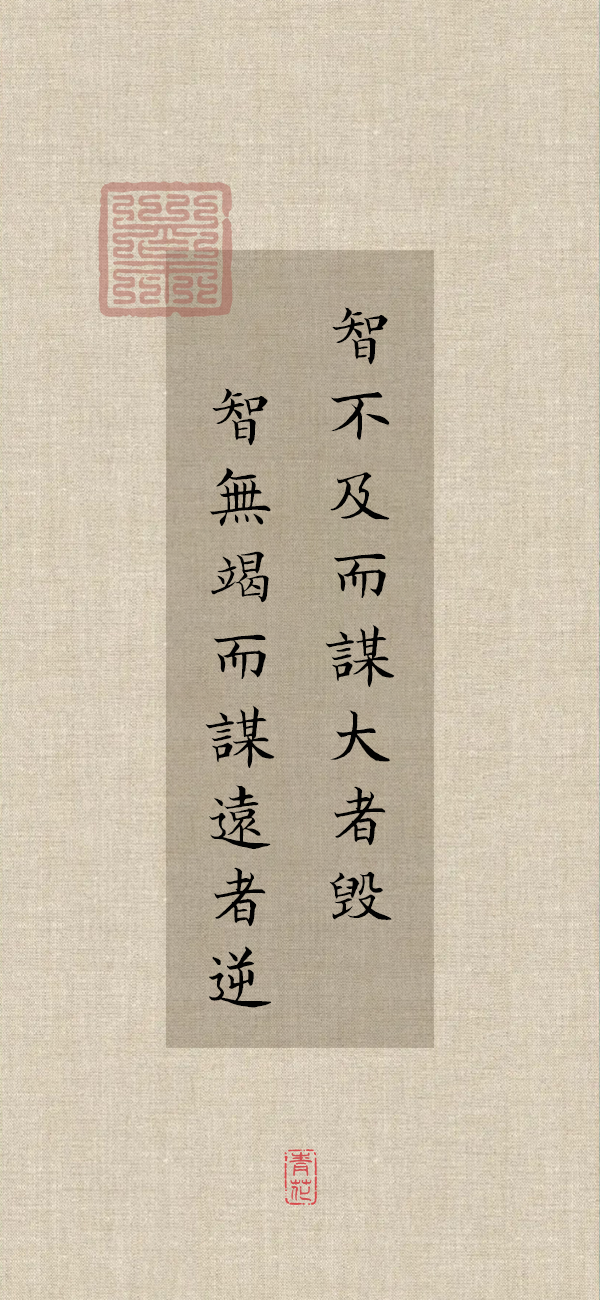 智不及而謀大者毀
智無竭而謀遠者逆
青花